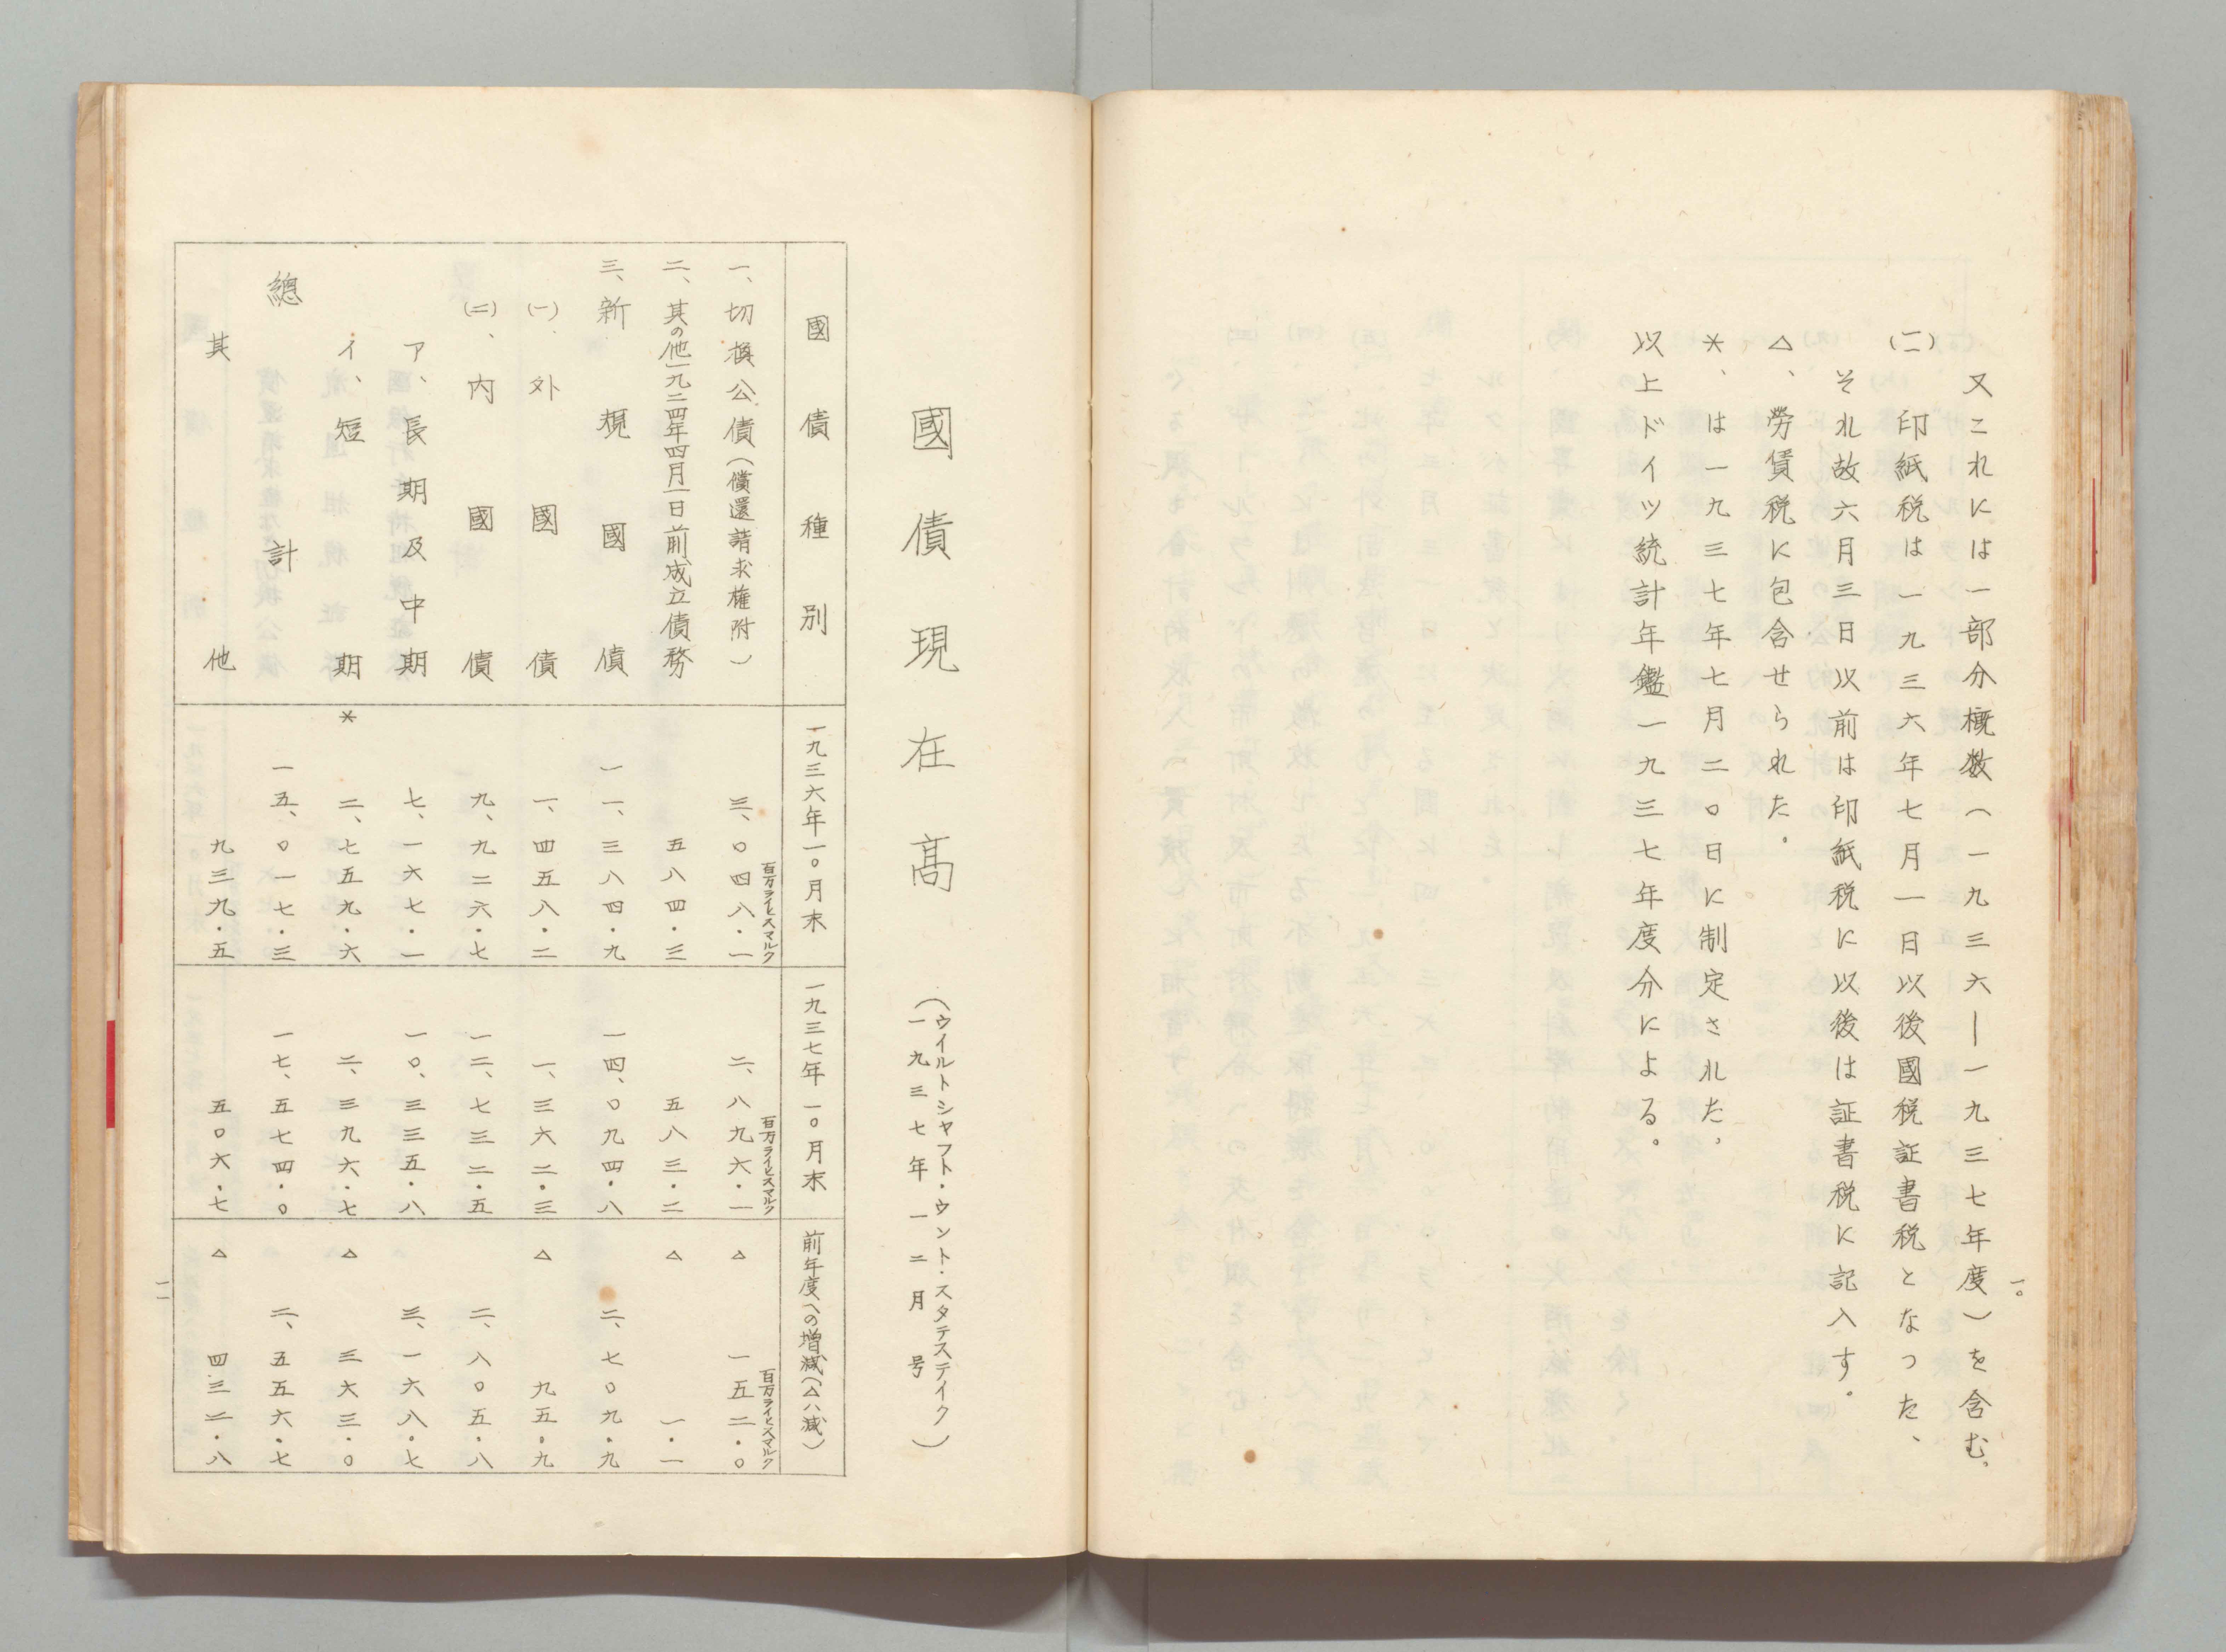 一〇
又これには一部分概数（一九三六―一九三七年度）を含む。
(二)印紙税は一九三六年七月一日以後國税証書税となつた、
それ故六月三日以前は印紙税に以後は証書税に記入す。
△、勞賃税に包含せられた。
＊、は一九三七年七月二〇日に制定された、
以上ドイツ統計年鑑一九三七年度分による。
國債現在高
（ウイルトシヤフト・ウント・スタテステイク
一九三七年一二月号）
國債種別 一九三六年一〇月末 一九三七年一〇月末 前年度への増減（△ハ減）
百万ライヒスマルク 百万ライヒスマルク 百万ライヒスマルク
一、切換公債（償還請求権附） 三、〇四八・一 二、八九六・一 △ 一五二・〇
二、其の他一九二四年四月一日前成立債務 五八四・三 五八三・二 △ 一・一
三、新規國債 一一、三八四・九 一四、〇九四・八 二、七〇九・九
(一)、外國債 一、四五八・二 一、三六二・三 △ 九五・九
(二)、内國債 九、九二六・七 一二、七三二・五 二、八〇五・八
ア、長期及中期 七、一六七・一 一〇、三三五・八 三、一六八・七
イ、短期 ＊ 二、七五九・六 二、三九六・七 △ 三六三・〇
總計 一五、〇一七・三 一七、五七四・〇 二、五五六・七
其他 九三九・五 五〇六・七 △ 四三二・八
一一